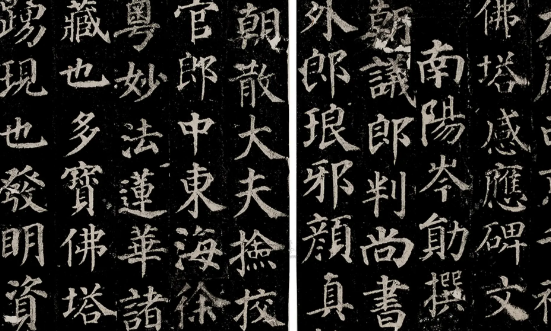 佛塔感應碑文
南陽岑勛撰
朝議郎判尚書
外郎琅邪顏真
朝散大夫撿挍
官郎中東海徐
粵妙法蓮華諸
藏也多寶佛塔
踴現也發明資